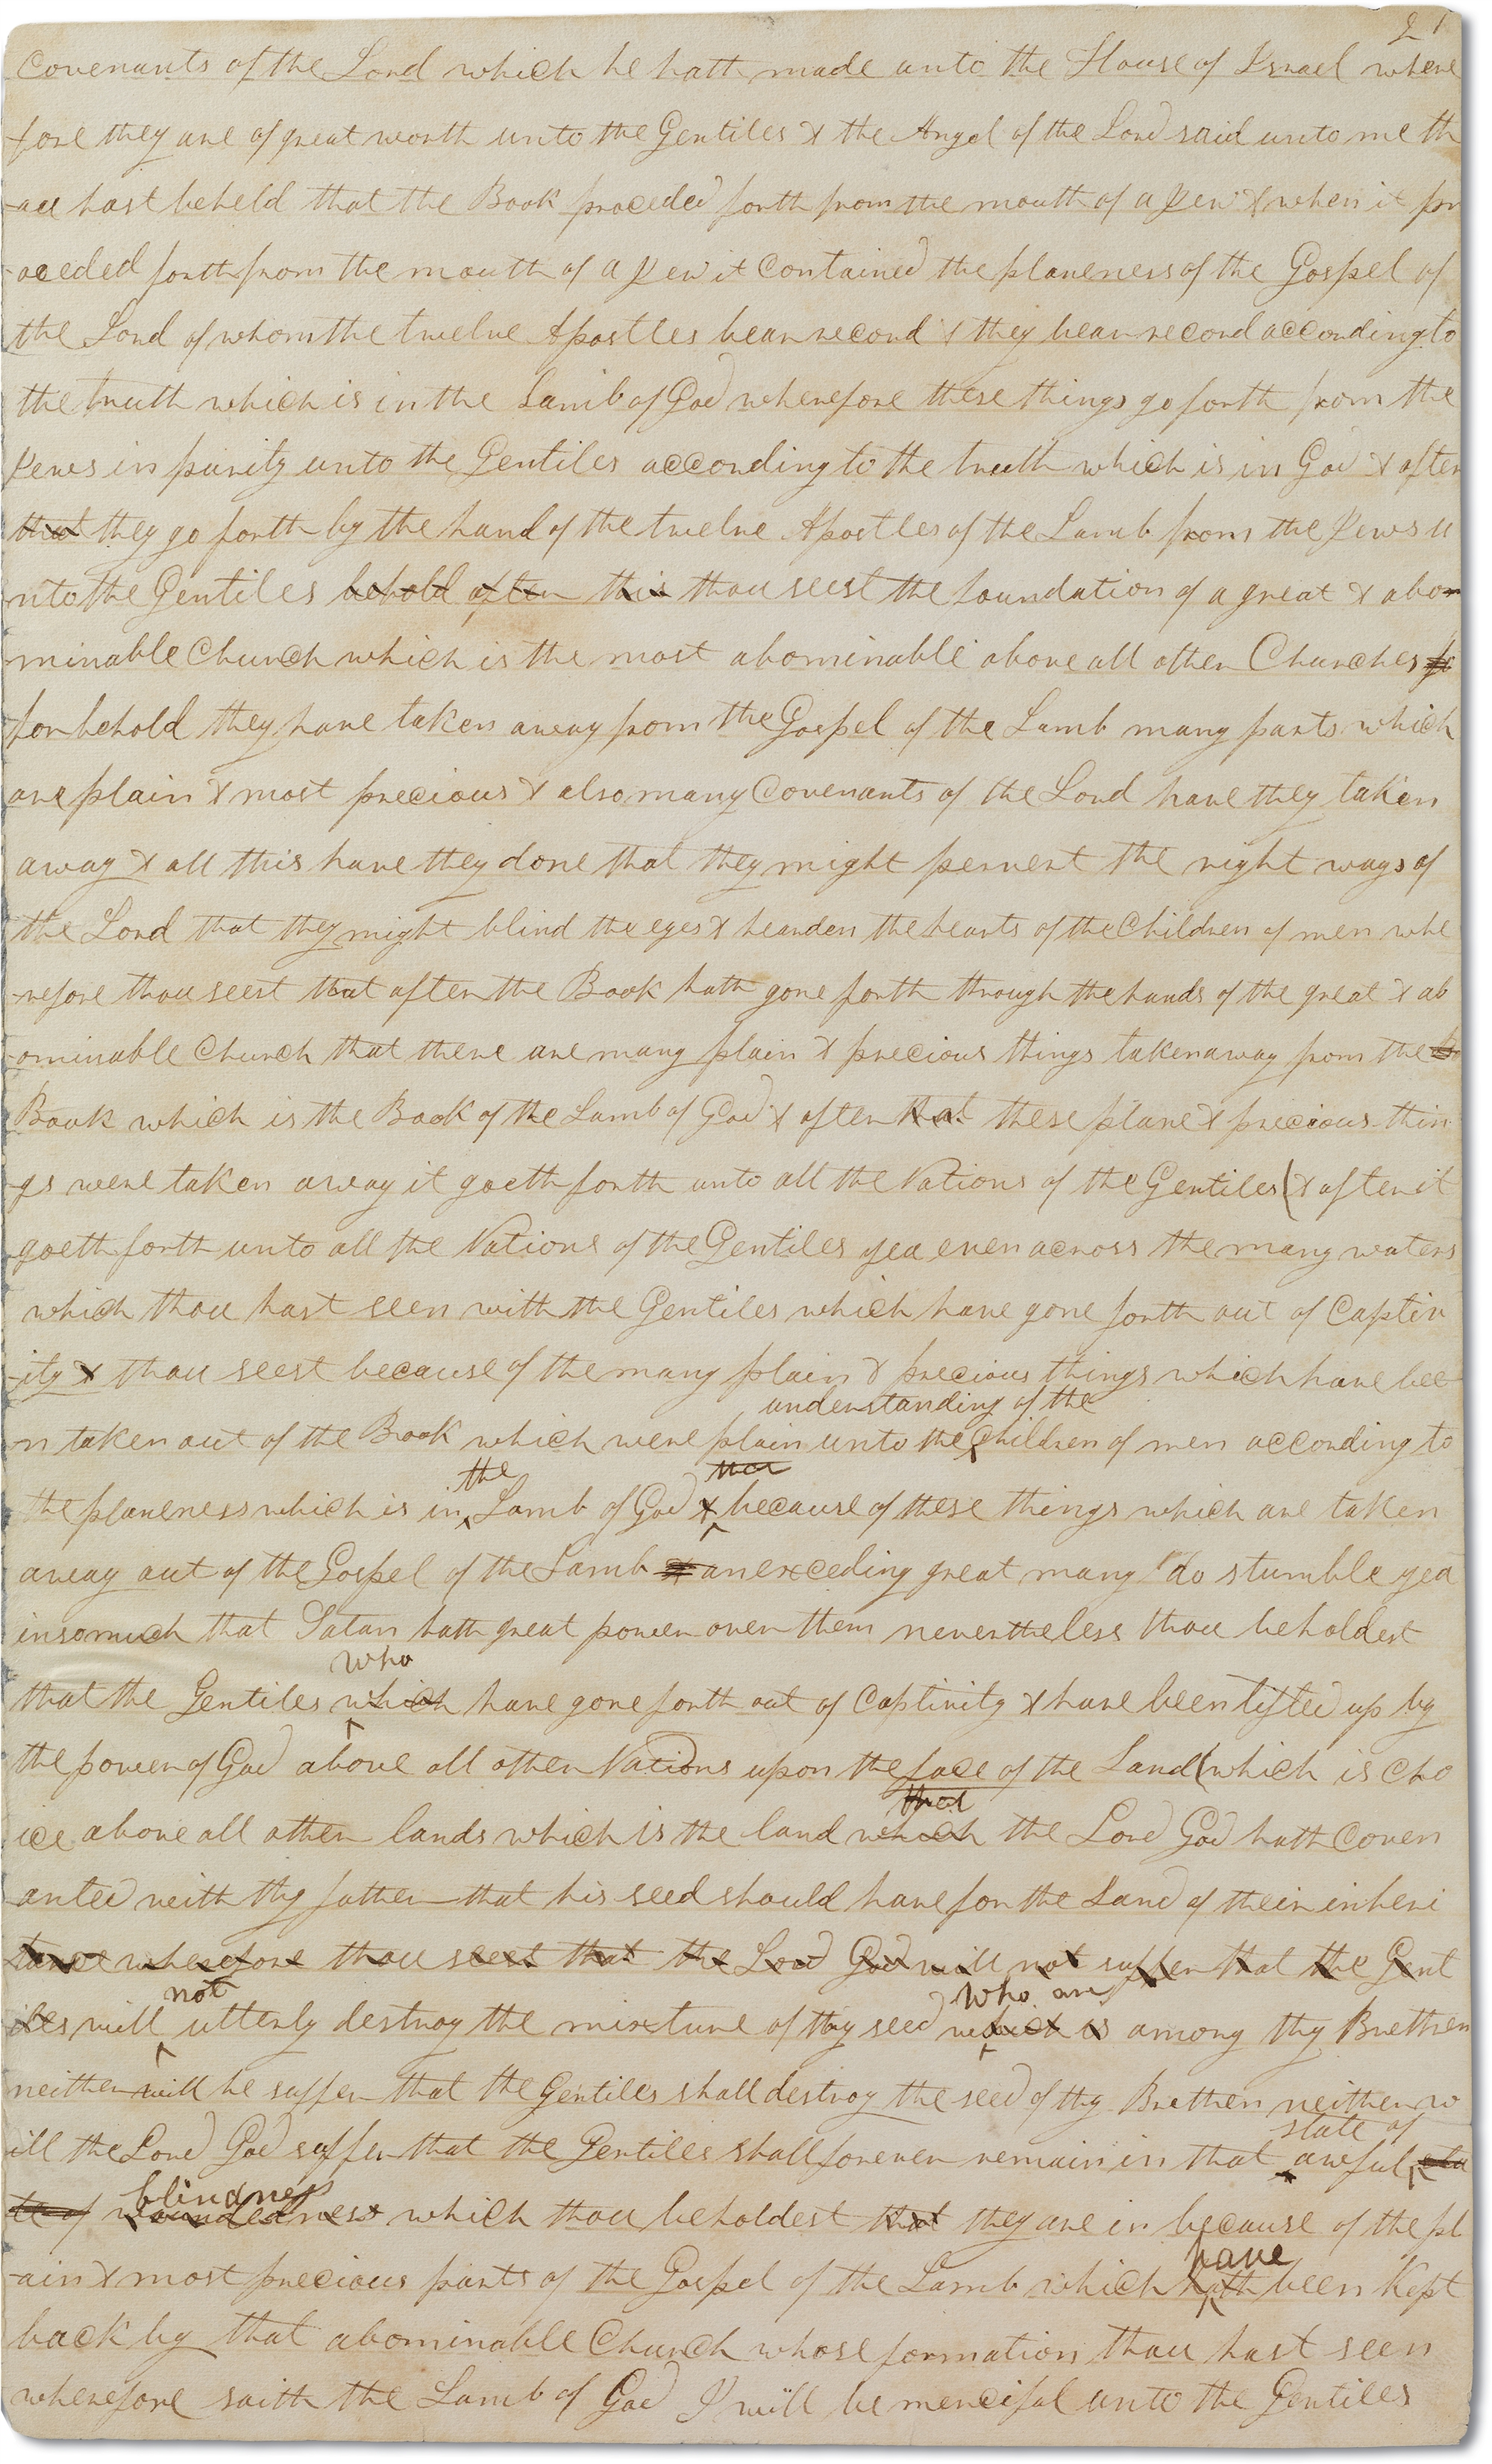 21
Covenants of the Lord which he hath made unto the House of Israel where
fore they are of great worth unto the Gentiles & the Angel of the Lord said unto me th
-ou hast beheld that the Book proceded forth from the mouth of a Jew & when it pr
-oceded forth from the mouth of a Jew it contained the planeness of the Gospel of
the Lord of whom the twelve Apostles bear record & they bear record according to
the truth which is in the Lamb of God wherefore these things go forth from the
Jews in purity unto the Gentiles according to the truth which is in God & after
that they go forth by the hand of the twelve Apostles of the Lamb from the Jews u
nto the Gentiles behold after this thou seest the foundation of a great & abo
minable Church which is the most abominable above all other Churches fo
for behold they have taken away from the Gospel of the Lamb many parts which
are plain & most precious & also many Covenants of the Lord have they taken
away & all this have they done that they might pervert the right ways of
the Lord that they might blind the eyes & hearden the hearts of the Children of men whe
-refore thou seest that after the Book hath gone forth through the hands of the great & ab
-ominable Church that there are many plain & precious things taken away from the B
Book which is the Book of the Lamb of God & after that these plane & precious thin
-gs were taken away it goeth forth unto all the Nations of the Gentiles & after it
goeth forth unto all the Nations of the Gentiles yea even across the many waters
which thou hast seen with the Gentiles which have gone forth out of Captiv
-ity & thou seest because of the many plain & precious things which have bee
understanding of the
-n taken out of the Book which were plain unto the Children of men according to
the nor
the planeness which is in Lamb of God & because of these things which are taken
away out of the Gospel of the Lamb & an exceding great many do stumble yea
insomuch that Satan hath great power over them nevertheless thou beholdest
who
that the Gentiles which have gone forth out of Captivity & have been lifted up by
the power of God above all other Nations upon the face of the Land which is cho
that
ice above all other lands which is the land which the Lord God hath coven
anted with thy father that his seed should have for the Land of their inheri
tance wherefore thou seest that the Lord God will not suffer that the Gent
not who are
iles will utterly destroy the mixture of thy seed which is among thy Brethren
neither will he suffer that the Gentiles shall destroy the seed of thy Brethren neither w
state of
ill the Lord God suffer that the Gentiles shall forever remain in that awful sta
blindness
te of woundedness which thou beholdest that they are in because of the pl
have
-ain & most precious parts of the Gospel of the Lamb which hath been kept
back by that abominable Church whose formation thou hast seen
wherefore saith the Lamb of God I will be merciful unto the Gentiles